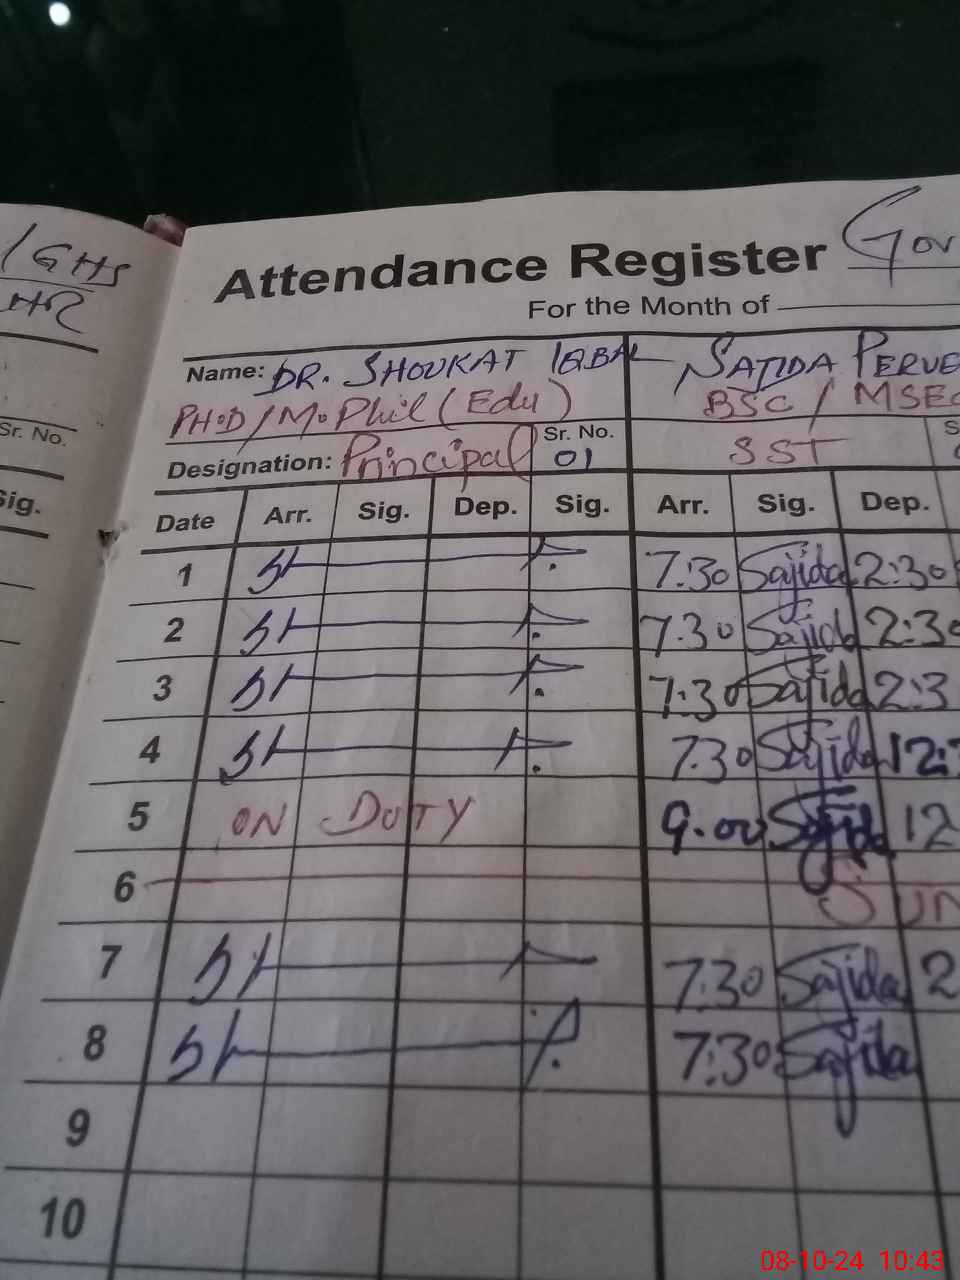 GHS
Attendance Register Gov
For the Month of
Name: DR. SHOUKAT IQBAL SAJIDA PERVE
PH.D/M.Phil (Edu) BSC / MSEC
Sr. No.
Designation: Principal Sr. No. 01 SST S
Sig.
Date Arr. Sig. Dep. Sig. Arr. Sig. Dep.
1 7.30 Sajida 2:30
2 7.30 Sajida 2:30
3 7:30 Sajida 2:3
4 7.30 Sajida 12:
5 ON DUTY 9.00 Sajida 12
6 SUN
7 7:30 Sajida 2
8 7:30 Sajida
9
10
08-10-24 10:43